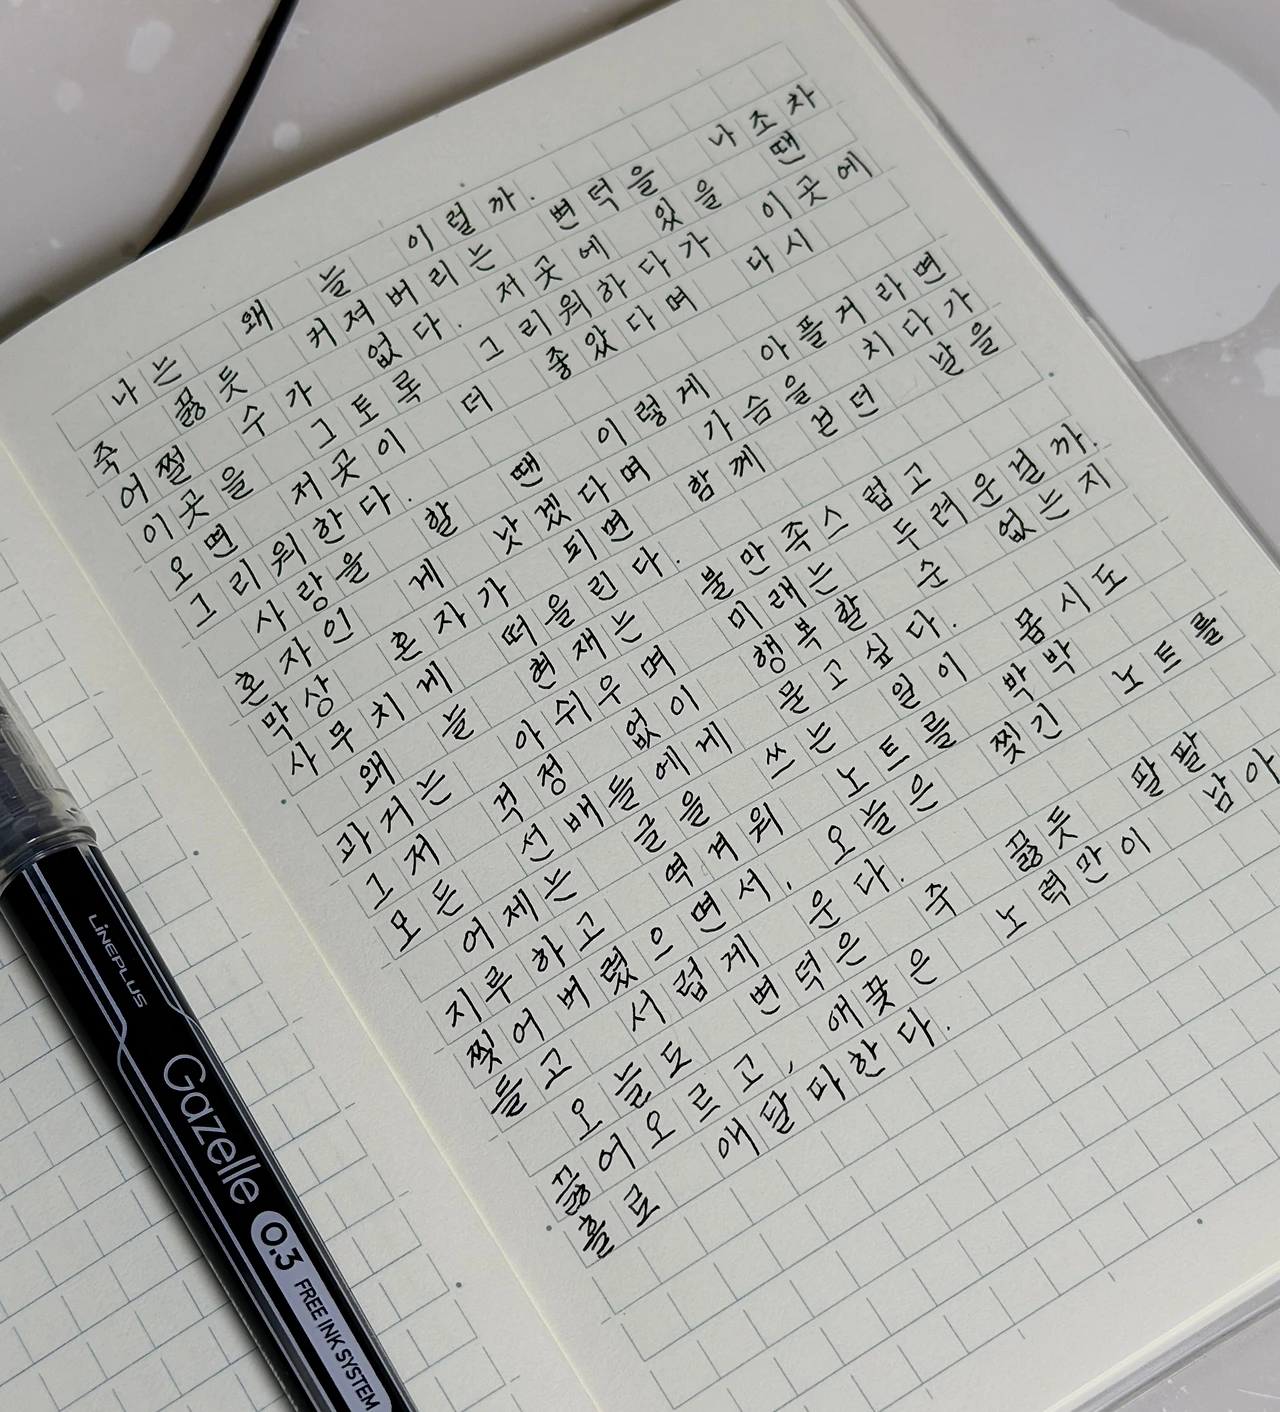 나는 왜 늘 이럴까.
죽 끓듯 커져버리는 변덕을 나조차
어쩔 수가 없다. 저곳에 있을 땐
이곳을 그토록 그리워하다가 이곳에
오면 저곳이 더 좋았다며 다시
그리워한다.
사랑을 할 땐 이렇게 아플거라면
혼자인 게 낫겠다며 가슴을 치다가
막상 혼자가 되면 함께 걷던 날을
사무치게 떠올린다.
왜 늘 현재는 불만족스럽고
과거는 아쉬우며 미래는 두려운걸까.
그저 걱정 없이 행복할 순 없는지
모든 선배들에게 묻고싶다.
어제는 글을 쓰는 일이 몹시도
지루하고 역겨워 노트를 박박
찢어버렸으면서, 오늘은 찢긴 노트를
들고 서럽게 운다.
오늘도 변덕은 죽 끓듯 팔팔
끓어오르고, 애꿎은 노력만이 남아
홀로 애달파한다.
LINEPLUS
Gazelle
0.3 FREE INK SYSTEM